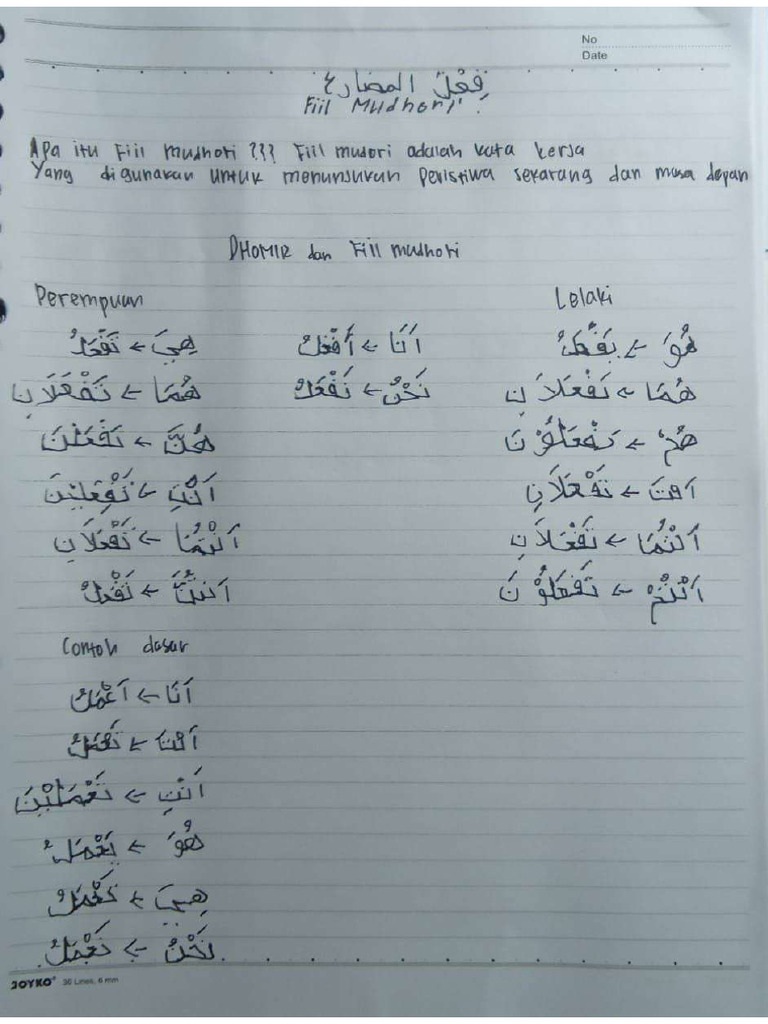 No
Date
فِعْلُ المضارع
Fiil Mudhori'
Apa itu Fiil mudhori ??? Fiil mudori adalah kata kerja
Yang digunakan untuk menunjukan Peristiwa sekarang dan masa depan
DHOMIR dan Fiil mudhori
Perempuan
Lelaki
هِيَ ← تَفْعَلُ
أَنَا ← أَفْعَلُ
هُوَ ← يَفْعَلُ
هُمَا ← تَفْعَلَانِ
نَحْنُ ← نَفْعَلُ
هُمَا ← تَفْعَلَانِ
هُنَّ ← تَفْعَلْنَ
هُمْ ← تَفْعَلُوْنَ
اَنْتِ ← تَفْعَلِيْنَ
اَنْتَ ← تَفْعَلَانِ
اَنْتُمَا ← تَفْعَلَانِ
اَنْتُمَا ← تَفْعَلَانِ
اَنْتُنَّ ← تَفْعَلُ
اَنْتُمْ ← تَفْعَلُوْنَ
Contoh dasar
اَنَا ← اَعْمَلُ
اَنْتَ ← تَعْمَلُ
اَنْتِ ← تَعْمَلِيْنَ
هُوَ ← يَعْمَلُ
هِيَ ← تَعْمَلُ
نَحْنُ ← نَعْمَلُ
JOYKO 30 Lines, 6 mm